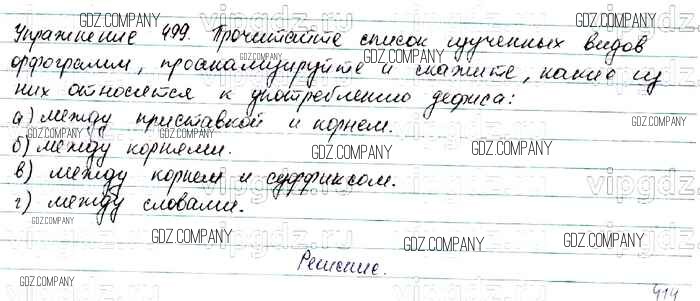 Упражнение 499. Прочитайте список изученных видов
орфограмм, проанализируйте и скажите, какие из
них относятся к употреблению дефиса:
а) между приставкой и корнем.
б) между корнями.
в) между корнем и суффиксом.
г) между словами.
Решение.
414
GDZ.COMPANY
GDZ.COMPANY
GDZ.COMPANY
GDZ.COMPANY
GDZ.COMPANY
GDZ.COMPANY
GDZ.COMPANY
GDZ.COMPANY
GDZ.COMPANY
GDZ.COMPANY
GDZ.COMPANY
GDZ.COMPANY
GDZ.COMPANY
vipgdz.ru
vipgdz.ru